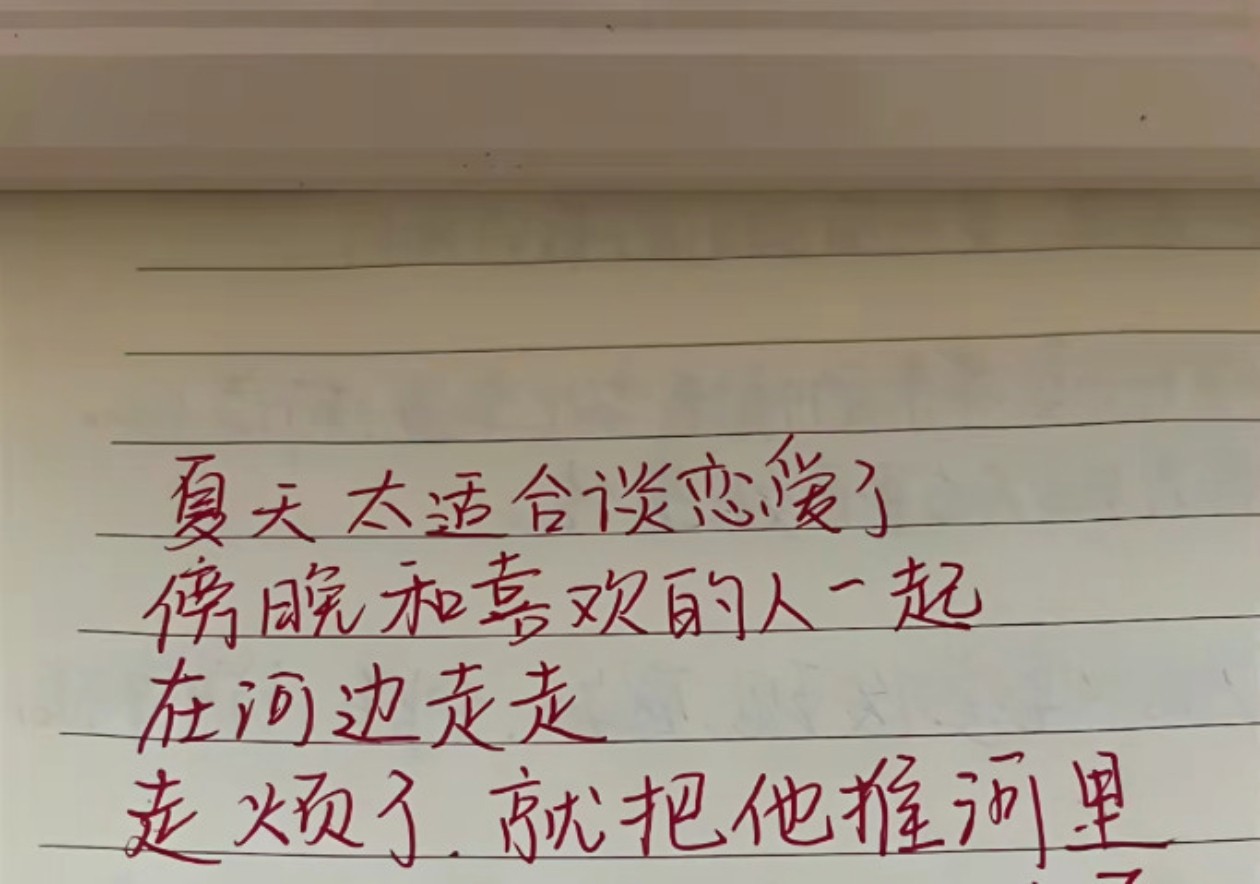 夏天太适合谈恋爱了
傍晚和喜欢的人一起
在河边走走
走烦了.就把他推河里